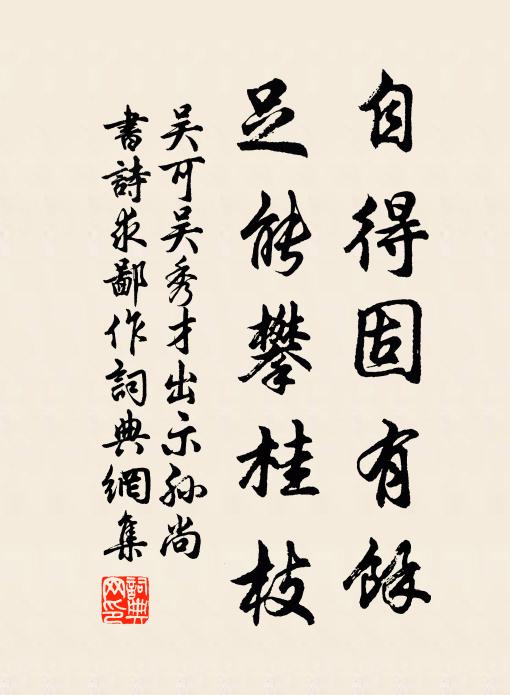 自得固有餘
足能攀桂枝
吴可吴秀才出示孙尚
書詩求鄙作詞典網集
詞典
网印